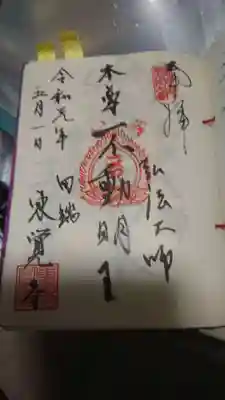 奉拝
弘法大師
本尊 不動明王
田端
東覚寺
令和元年
五月一日